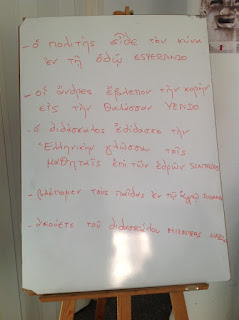 - ὁ πολιτής εἶδε τὸν κύνα
ἐν τῇ ὁδῷ ESPERANDO
- οἱ ἄνδρες ἔβλεπον τὴν κόρην
εἰς τὴν θάλασσαν YENDO
- ὁ διδάσκαλος ἐδίδασκε τὴν
Ἑλληνικὴν γλῶσσαν τοῖς
μαθηταῖς ἐπὶ τῶν ἑδρῶν SENTADOS
- βλέπομεν τοὺς παῖδας ἐν τῇ
- ἀκούετε τοῦ διδασκάλου MIENTRAS